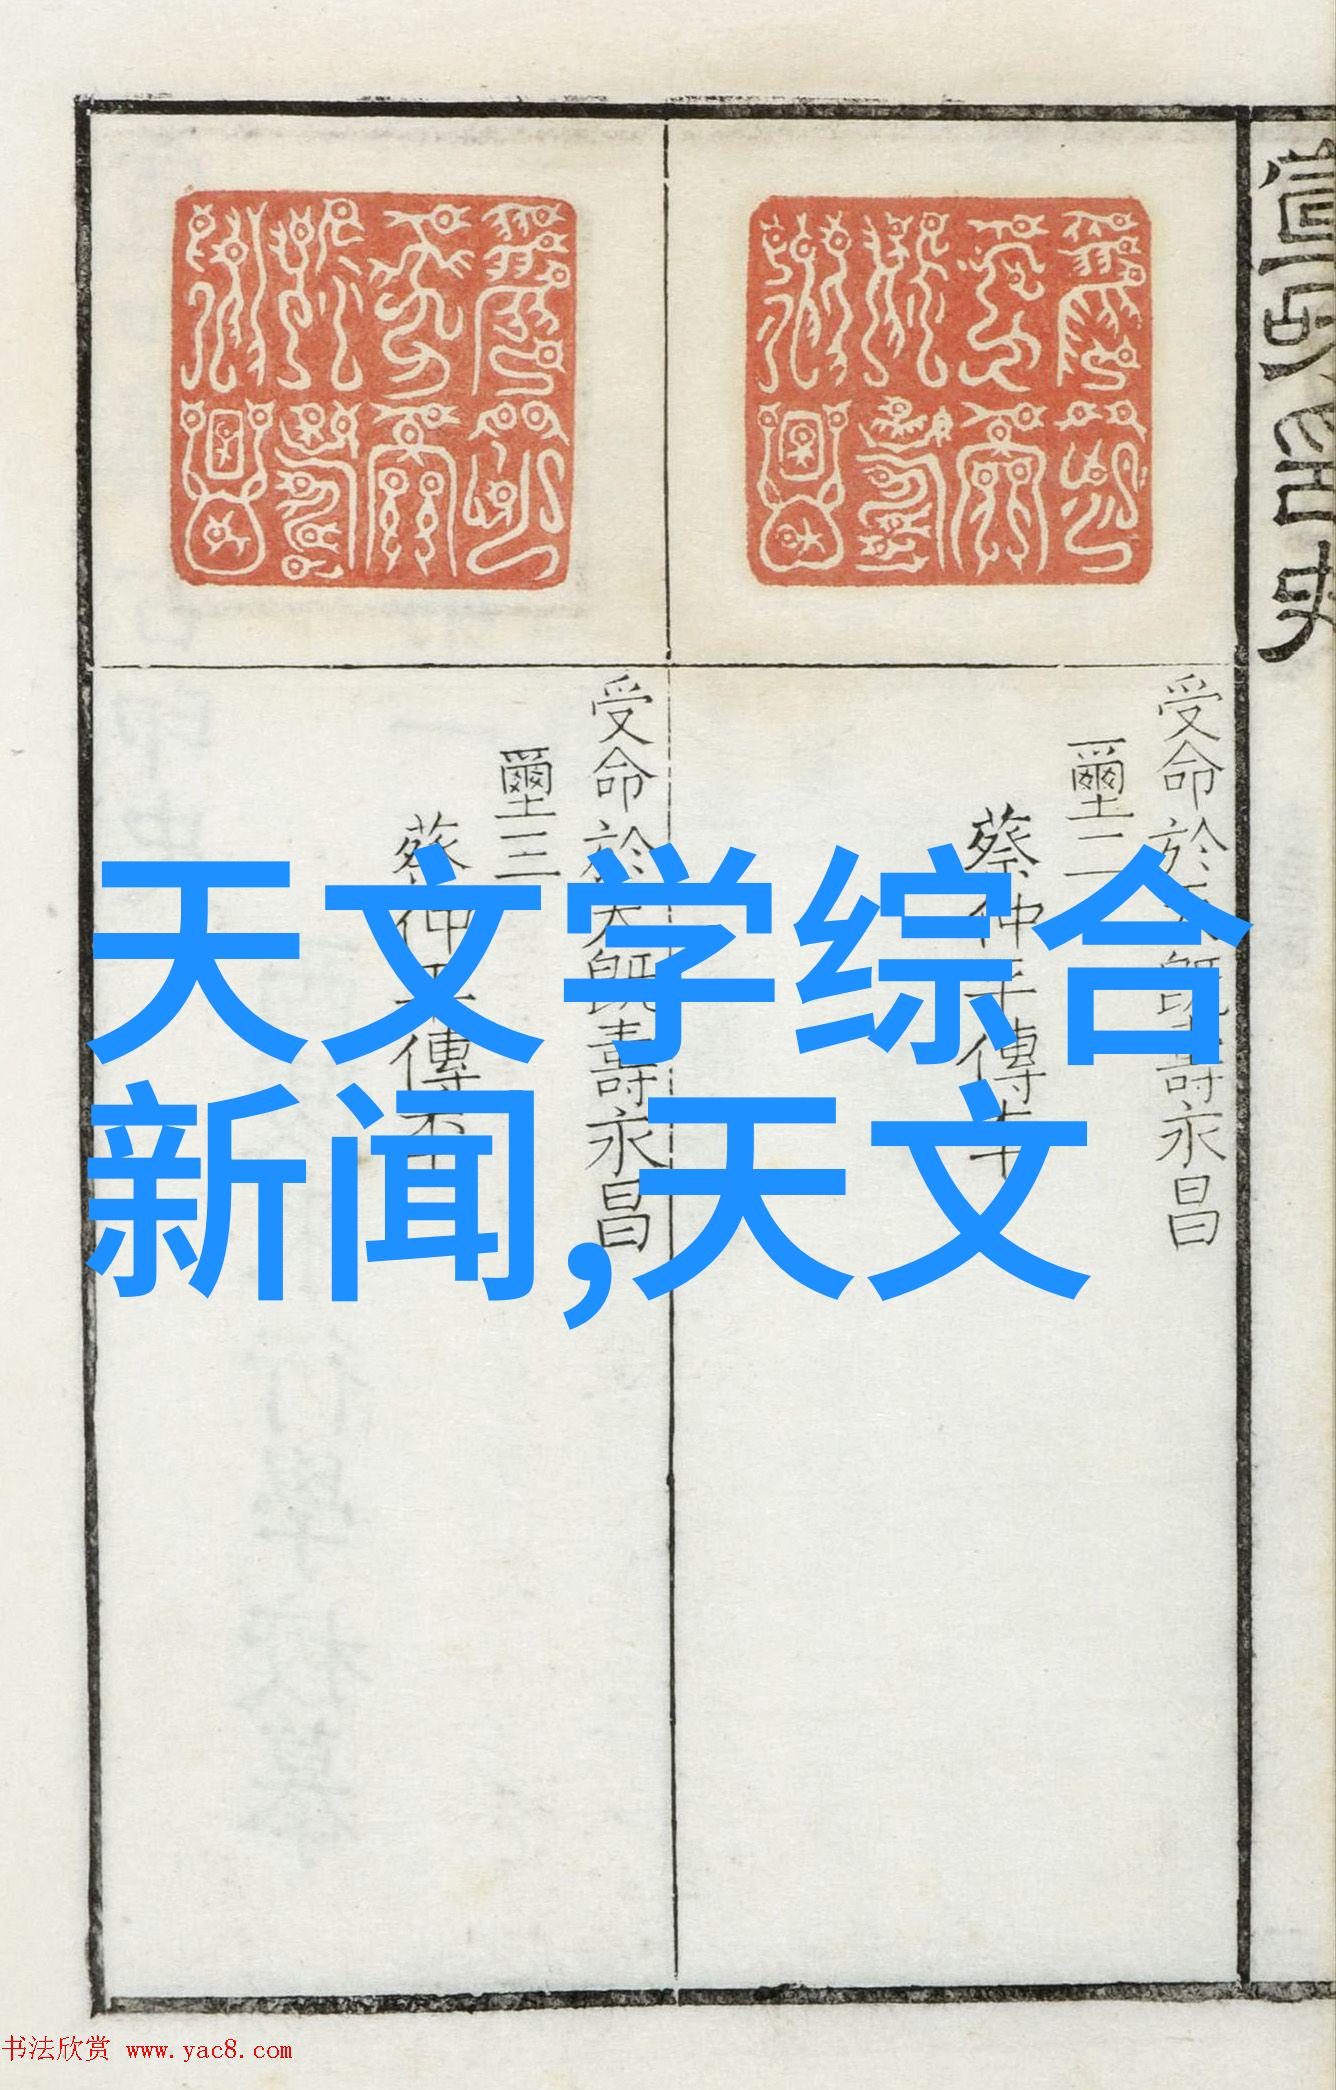 天文学综合
新闻,天文
受命於天既壽永昌
璽二
蔡仲平傳本
受命於天既壽永昌
璽三
蔡仲平傳本
书法欣赏 www.yac8.com